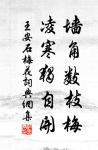 墙角数枝梅
凌寒独自开
王安石梅花词典网集